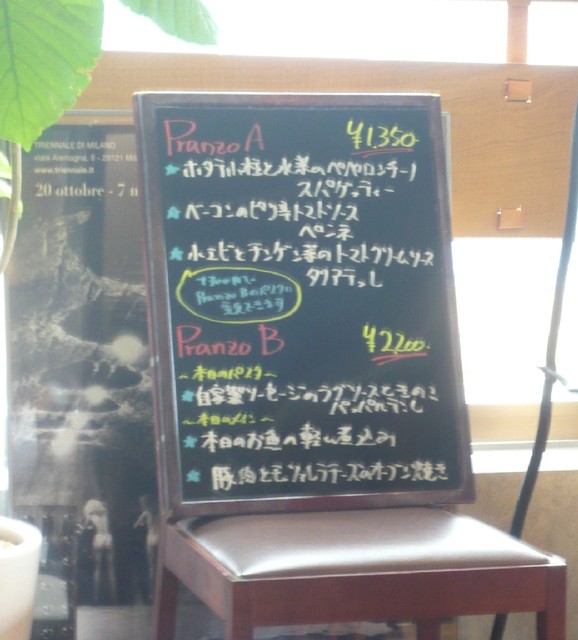 TRIENNALE DI MILANO
viale Alemagna, 6 - 20121 Mi
www.triennale.it
20 ottobre - 7 n
Pranzo A ¥1,350.
ホタテ小柱と水菜のペペロンチーノ
スパゲッティー
ベーコンのピリ辛トマトソース
ペンネ
小エビとチンゲン菜のトマトクリームソース
タリアテッレ
Pranzo Bのパスタに
変更できます
Pranzo B ¥2,200.
〜本日のパスタ〜
自家製ソーセージのラグソースときのこ
パッパルデーレ
〜本日のメイン〜
本日のお魚の軽い煮込み
豚肉とモッツァレラチーズのオーブン焼き